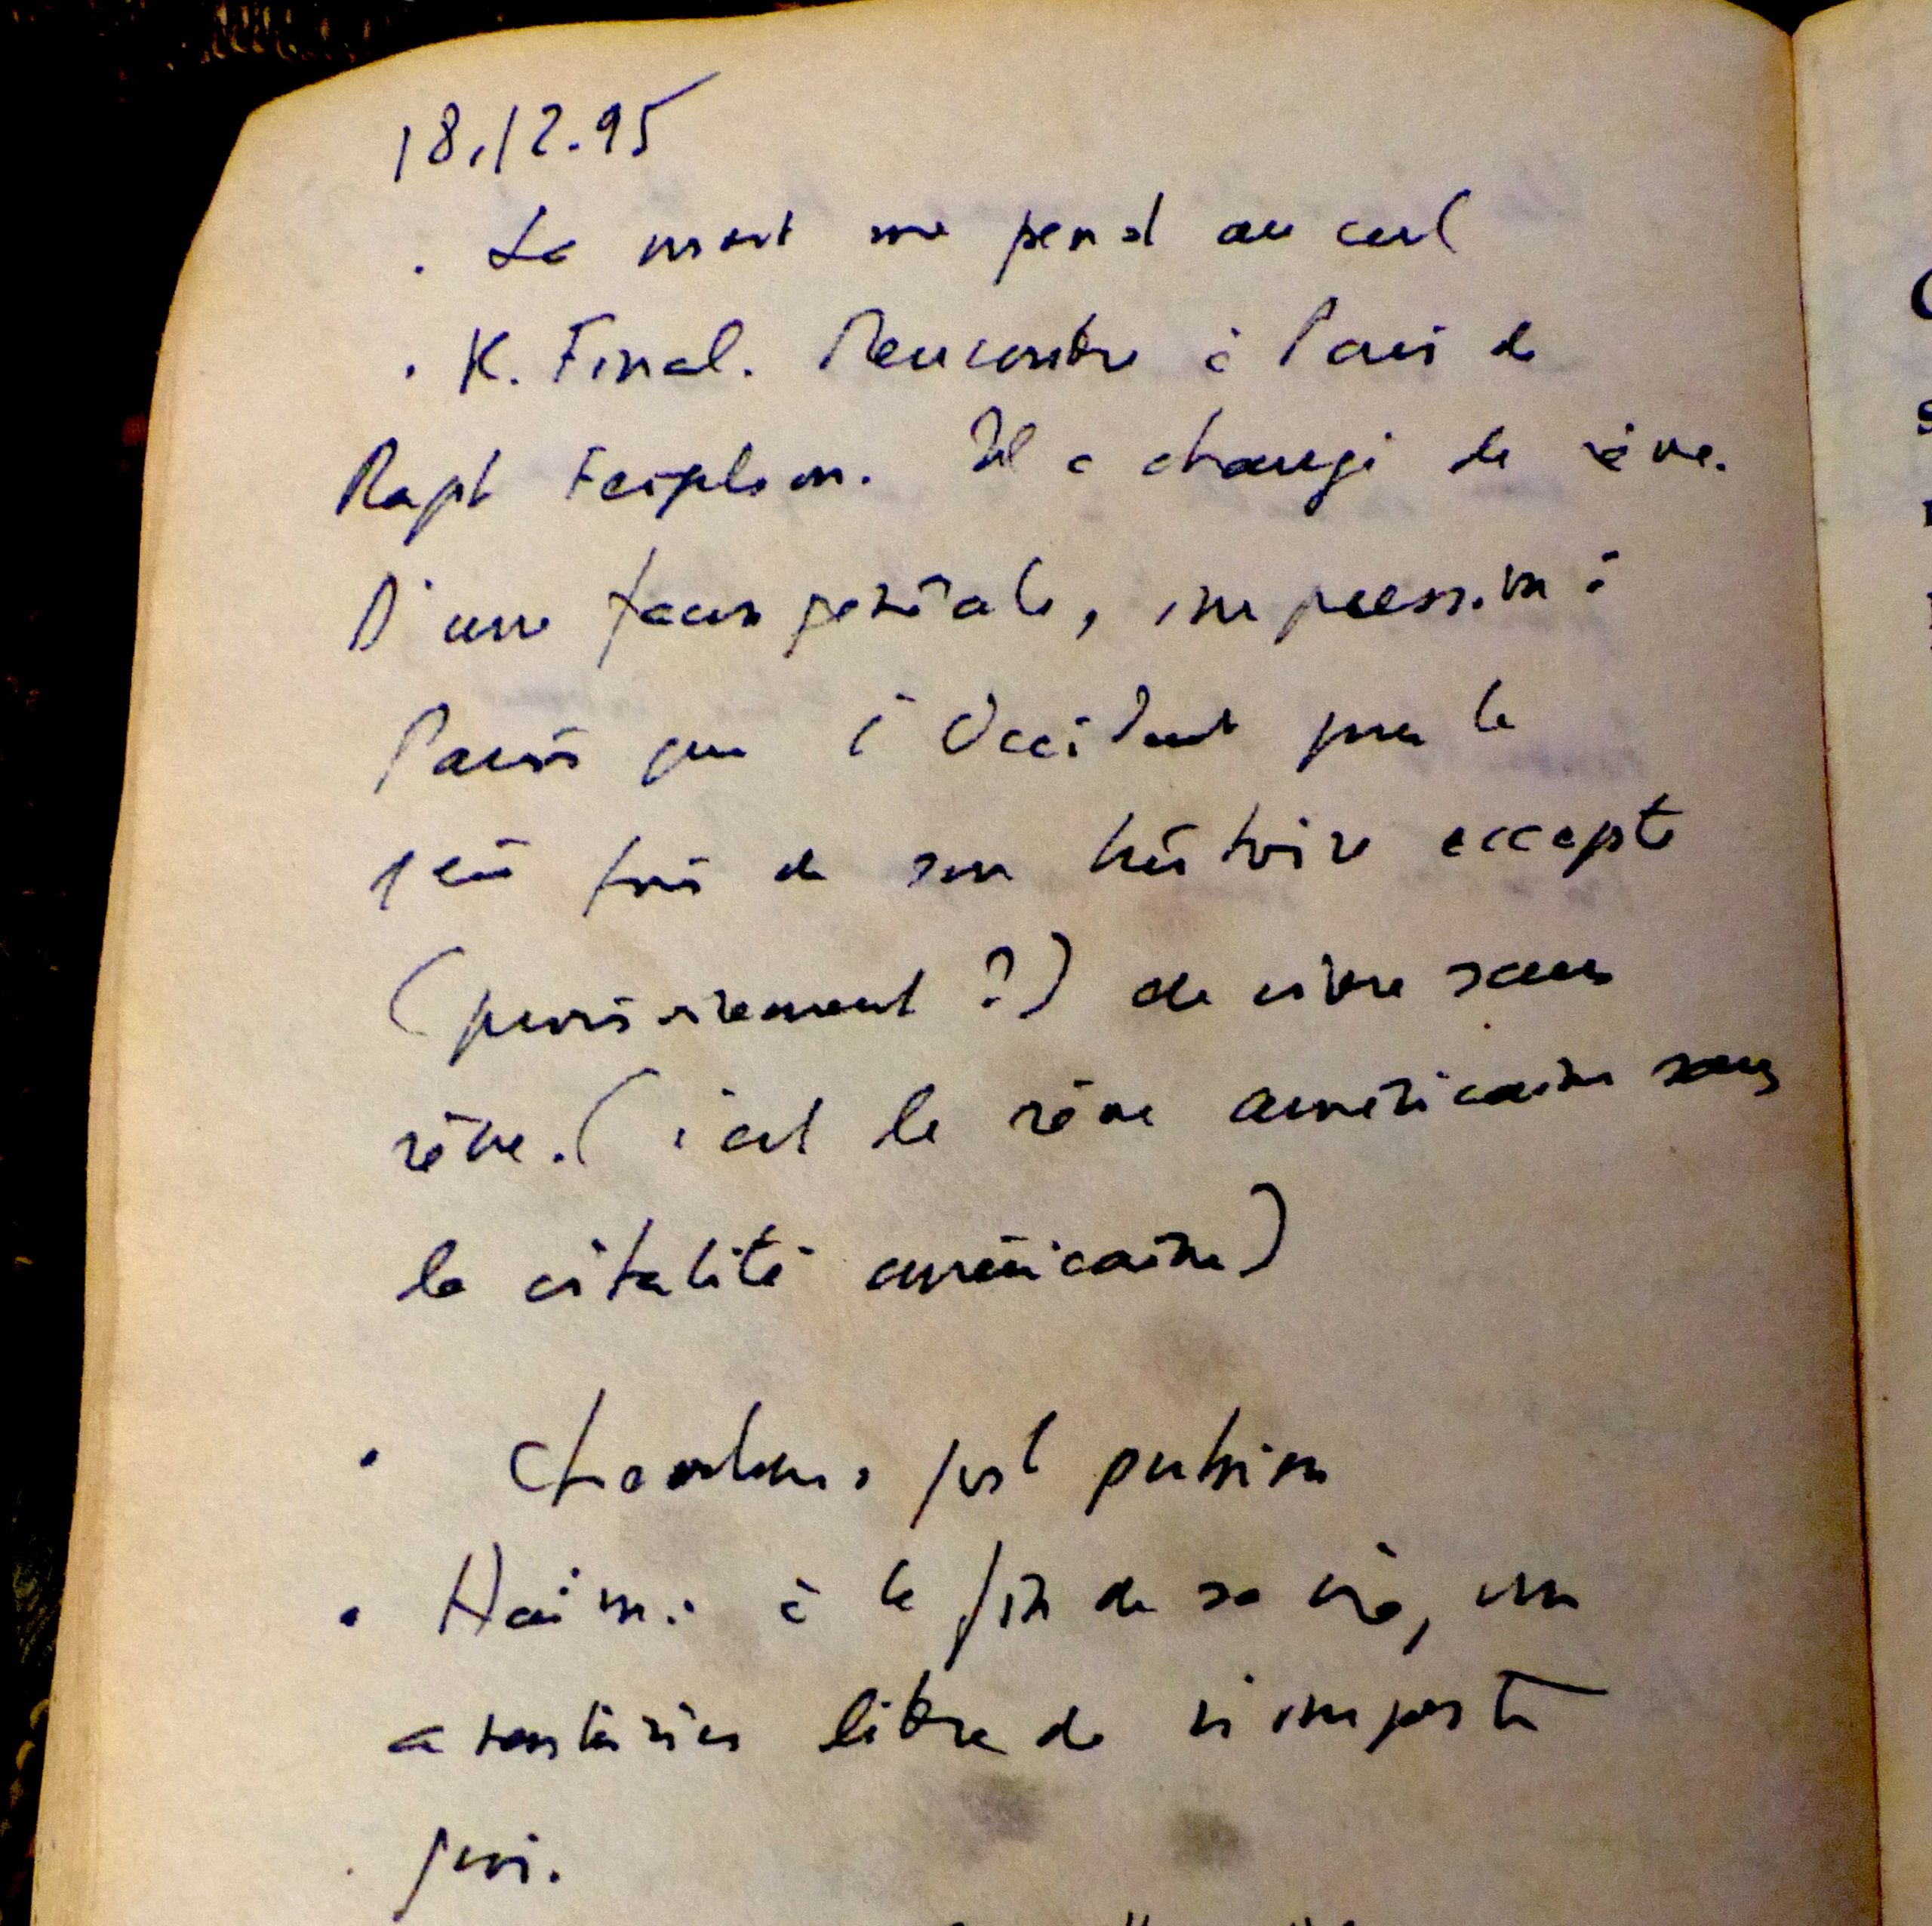 18.12.95
. La mort me pend au cul
. K. Final. Rencontre à Paris de
Il a changé de rêve.
D'une façon générale, impression à
Paris que l'Occident pour la
1ère fois de son histoire accepte
(provisoirement ?) de vivre sans
rêve. (c'est le rêve américain sans
la vitalité américaine)
. post
. Haïm : à la fin de sa vie, un
libre de n'importe
quoi.